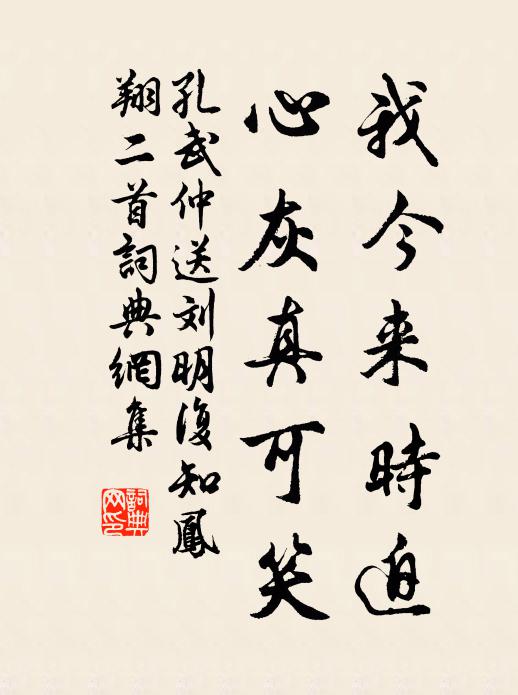 我今来時迫
心灰真可笑
孔武仲送刘明復知鳳
翔二首詞典網集
詞典网印